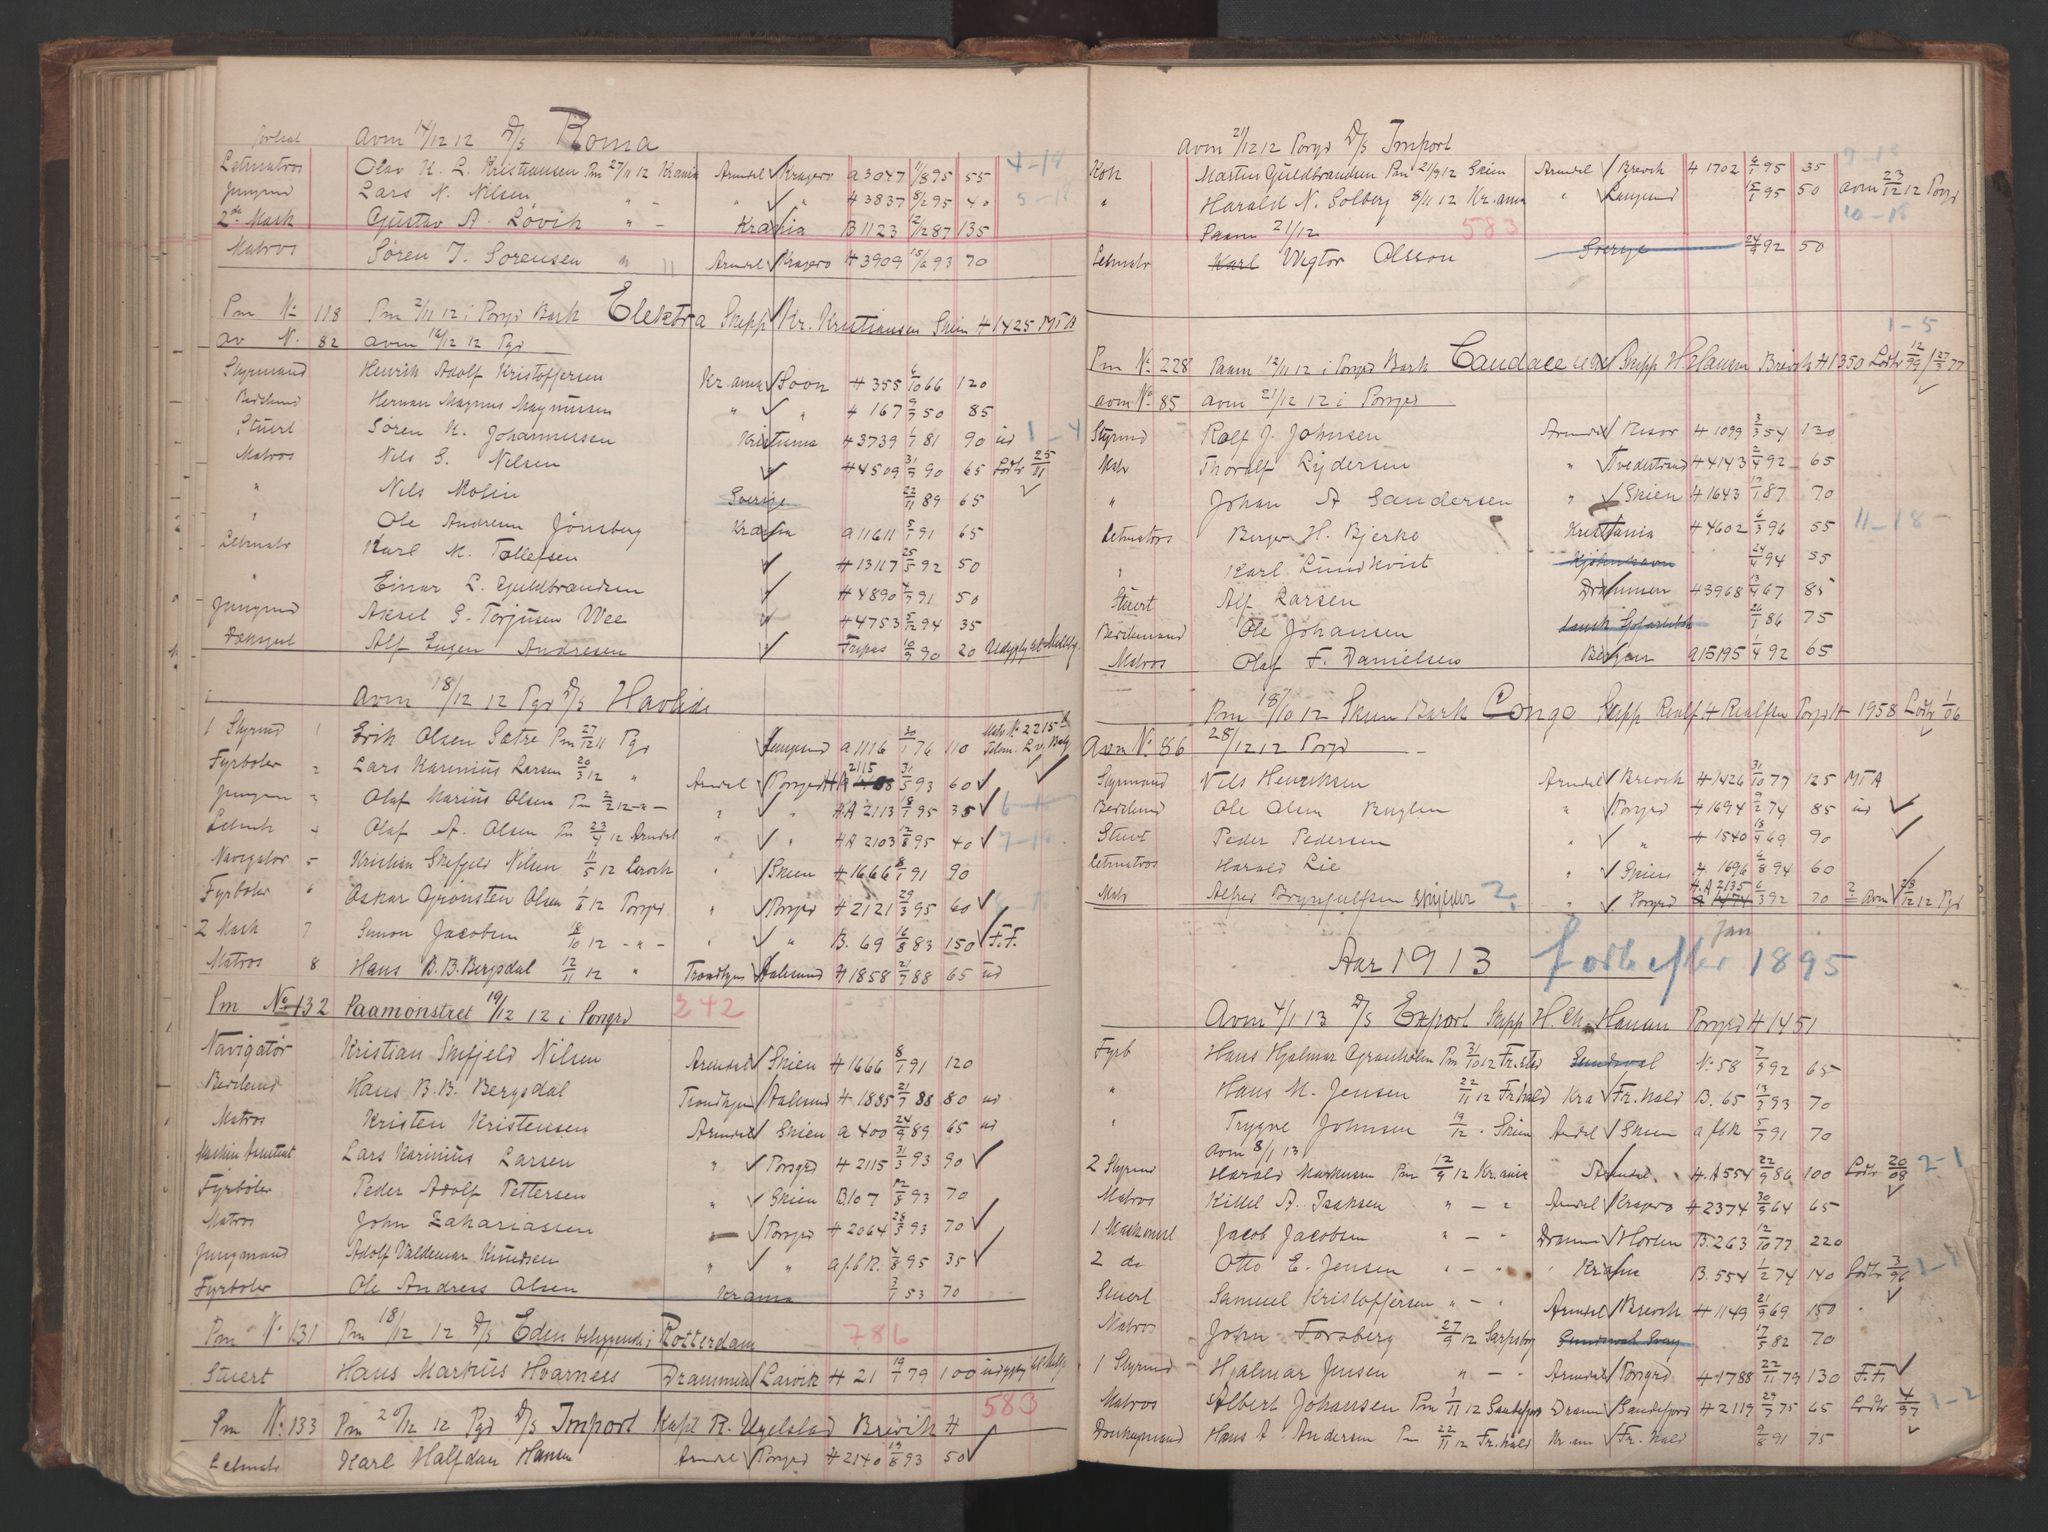 forhsat Avm 14/12 12 D/S Roma
Letmatros Olav K. L. Kristiansen Pm 27/11 12 Krania Arendel Kragerø a 3047 11/8 95 55 4-18
Jungmd Lars N. Nilsen " - " " H 3837 8/2 95 40 5-18
2de Mask Gustav A. Løvik " - Krania B 1123 12/2 87 135
Matros Søren J. Sørensen " " Arendel Kragerø H 3909 15/6 93 70
Pm No 118 Pm 2/11 12 i Porgr Bark Elektra Skipp Kr. Kristiansen Skien H 1425 MTA
av N. 82 avm 16/12 12 Pgr
Styrmand Henrik Adolf Kristoffersen Kr.ania Soon H 355 6/10 66 120
Bestmnd Herman Magnus Magnussen " " H 167 9/7 50 85
Stuert Søren K. Johannessen Kristiania H 3739 1/7 81 90 ud 1-4
Matros Nils G. Nilsen H 4509 31/7 90 65 Lodtr 25/11
" Nils Molin Sverige 22/11 89 65
" Ole Andreas Jönsberg Krania a 11611 5/7 91 65
Letmatr Karl M. Tollefsen H 13117 25/5 92 50
" Einar L. Guldbrandsen H 4890 4/7 91 50
Jungmd Aksel G. Torjusen Wee " H 4753 3/12 94 35
Dæksgut Alf Eugen Andresen Fripas 10/9 90 20
Avm 18/12 12 Pgr D/S Havlide
1 Styrmd 1 Erik Olsen Sætre Pm 27/12 11 Pgr Langesund a 1116 30/1 76 110 Mst. No 2215
Fyrbøter 2 Lars Karinius Larsen 20/3 12 " Arendel Porsgrd H A 2115 31/3 93 60
Jungm 3 Olaf Marius Olsen Pm 2/2 12 - " - " " H A 2113 8/7 95 35 6-18
Letmtr 4 Olaf A. Olsen Pm 23/4 12 Arendel " " H A 2103 12/8 95 40 7-18
Navigatør 5 Kristian Skifjeld Nilsen 11/5 12 Larvik " Skien H 1666 8/1 91 90
Fyrbøter 6 Oskar Grønsten Olsen 1/6 12 Porsgrd " Porgrd H 2121 29/3 95 60 8-18
2 Mask 7 Simon Jacobsen 8/10 12 - " - " " B. 69 16/8 83 150 F.F.
Matros 8 Hans B. B. Bergsdal 12/11 12 " Trondhjem Aalesund H 1858 21/7 88 65 ud
Pm No 132 Paamønstret 19/12 12 i Porsgrd 242
Navigatør Kristian Skifjeld Nilsen Arendel Skien H 1666 8/1 91 120
Bestmnd Hans B. B. Bergsdal Trondhjem Aalesund H 1885 21/7 88 80 ud
Matros Kristen Kristensen Arendel Skien a 400 24/9 89 65 ud
Maskin Assistent Lars Karinius Larsen " Porsgrd H 2115 31/3 93 90
Fyrbøter Peder Adolf Pettersen " Skien B. 107 12/5 93 70
Matros John Zakariassen " Porsgrd H 2064 28/5 93 70
Jungmand Adolf Valdemar Knudsen " " a f b R. 4/8 95 35
Fyrbøter Ole Andreas Olsen Krania 3/1 53 70
Pm No 131 Pm 18/12 12 D/S Eden Rotterdam 786
Stuert Hans Markus Hvarness Drammen Larvik H 21 19/7 79 100
Pm No 133 Pm 20/12 12 Pgr D/S Import Kapt R. Ugelstad Brevik H 583
Letmatr Karl Halfdan Hansen Arendel Porsgrd H 2140 19/8 93 50
Avm 21/12 12 Porgr D/S Import
Kok Martin Guldbrandsen Pm 21/9 12 Skien Arendel Brevik H 1702 6/1 95 35 9-18
" Harald N. Solberg 8/11 12 Kr.ania " Langesund 15/1 95 50 avm 23/12 12 Porgr
Paam 21/12 583 10-18
Letmatr Karl Wigtor Olsson Sverige 24/9 92 50
1-5
Pm No 228 Paam 12/11 12 i Porgr Bark Candace Skipp H. Hansen Brevik H 1350 Lodtr 12/99 / 27/77
avm No 85 avm 21/12 12 i Porsgr
Styrmnd Rolf J. Johnsen Arendel Risør H 1099 3/3 54 120
Matr Thoralf Lydersen " Tvedestrand H 4143 2/4 92 65
" Johan A Sandersen " Skien H 1643 17/1 87 70
Letmatros Berger H. Bjerko Kristiania H 4602 6/3 96 55 11-18
" Karl Lundkvist Kjøbenhavn 24/4 94 55
Stuert Alf Larsen Drammen H 3968 13/4 67 85
Bestemand Ole Johansen dansk 26/1 86 75
Matros Olaf F. Danielsen Bergen a 15195 1/4 92 65
Pm 18/10 12 Skien Bark Congo Skipp Realf H Realfsen Porsgr H 1958 Lodtr 1/06
Avm No 86 28/12 12 Porgr
Styrmand Nils Henriksen Arendel Brevik H 1426 31/10 77 125 MTA
Bestmnd Ole Olsen Kuglen " Porsgrd H 1694 9/2 74 85 ud
Stuert Peder Pedersen " " H 1540 15/4 69 90
Letmatros Harald Lie " Skien H. 1696 6/8 94 60
Matr Alfred Brynjulfsen 2 " Porsgrd H.A 2135 6/3 92 70 avm 12 12 Pgr
Aar 1913 Jan 1895
Avm 4/1 13 D/S Export Skipp H. Chr. Hansen Porsgrd H 1451
Fyrb Hans Hjalmar Granholm Pm 31/10 12 Fr.stad Sundsval No 58 7/3 92 65
" Hans M. Jensen 22/11 12 Fr.hald Kra Fr.hald B. 65 13/7 93 70
" Trygve Johnsen 19/12 - Skien Arendel Skien a f b R 5/7 91 70
Avm 8/1 13
2 Styrmd Harald Markussen Pm 12/9 12 Kr.ania Arendel. H.A 554 22/9 86 100 Lodtr 20/08 2-1
Matros Kittel A. Isaksen " - " Arendel Kragerø H 2374 30/9 64 65
1 Maskinist Jacob Jacobsen " - " Dramm Horten B. 263 12/10 77 220
2 do Otto E. Jensen " - " " Krania B. 554 1/2 74 140 Lodtr 3/96 1-1
Stuert Samuel Kristoffersen " - " Arendel Brevik H 1149 21/9 69 150
Matros John Forsberg 27/9 12 Sarpsborg Sundsval 17/5 82 70
1 Styrmd Hjalmar Jensen " - " Arendal Porsgrd H 1788 22/11 79 130 F.F.
Matros Albert Johansen Pm 1/11 12 Sandefjord Dramm Sandefjord H 2119 29/7 75 65 Lodtr 4/97 1-2
Donkeymand Hans A. Andersen Pm 22/11 12 Fr.hald Kr.ania Fr.hald 9/8 91 75